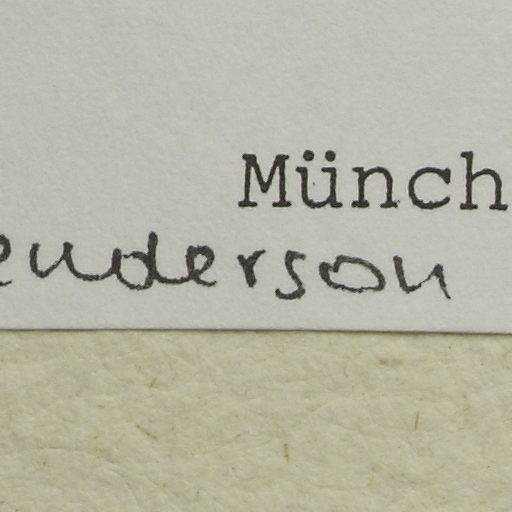 Münch
enderson